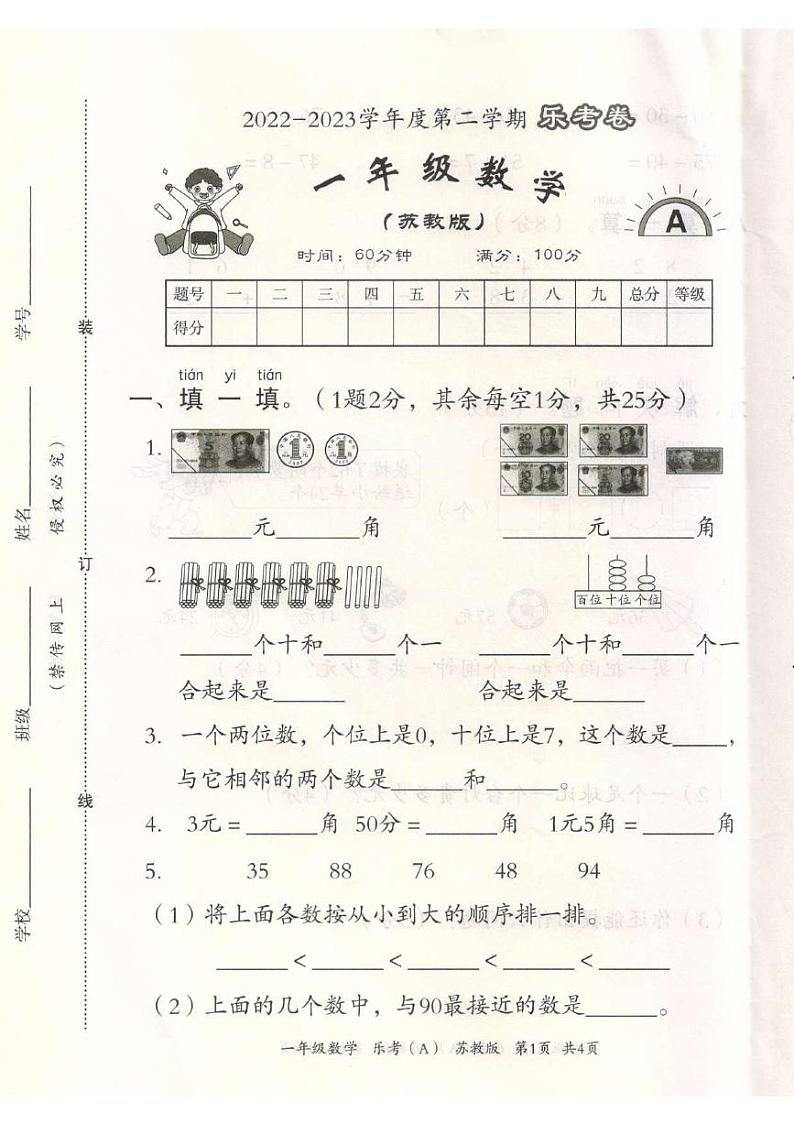 2022-2023学年度第二学期 乐考卷
一年级数学
（苏教版）
A
时间：60分钟 满分：100分
题号 一 二 三 四 五 六 七 八 九 总分 等级
得分
tián yi tián
一、填一填。（1题2分，其余每空1分，共25分）
1.
______元______角 ______元______角
2.
百位 十位 个位
______个十和______个一 ______个十和______个一
合起来是______ 合起来是______
3. 一个两位数，个位上是0，十位上是7，这个数是_____，
与它相邻的两个数是______和______。
4. 3元=______角 50分=______角 1元5角=______角
5. 35 88 76 48 94
（1）将上面各数按从小到大的顺序排一排。
______<______<______<______<______
（2）上面的几个数中，与90最接近的数是______。
一年级数学 乐考（A） 苏教版 第1页 共4页
学校______ 班级______ 姓名______ 学号______
（禁传网上 侵权必究）
装 订 线